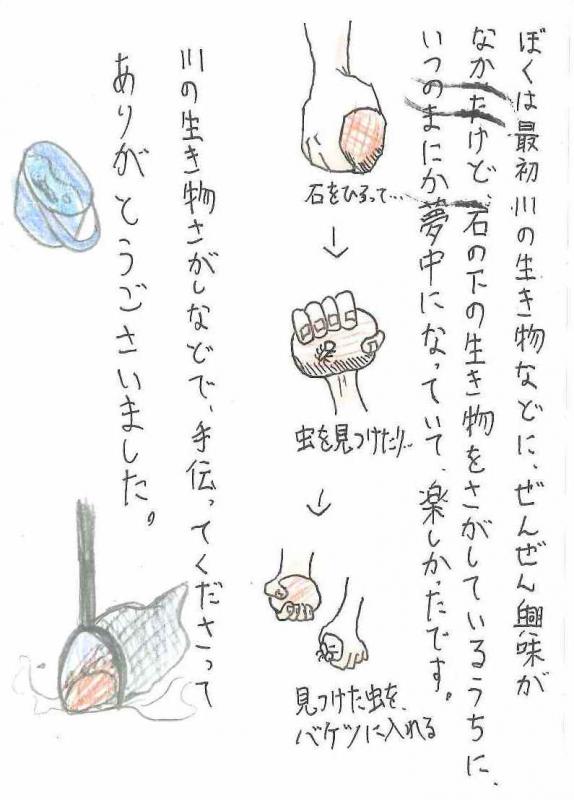 ぼくは最初川の生き物などに、ぜんぜん興味が
なかたけど、石の下の生き物をさがしているうちに、
いつのまにか夢中になっていて、楽しかったです。
石をひろって…
↓
虫を見つけたり…
↓
見つけた虫を、
バケツに入れる
川の生き物さがしなどで、手伝ってくださって
ありがとうございました。